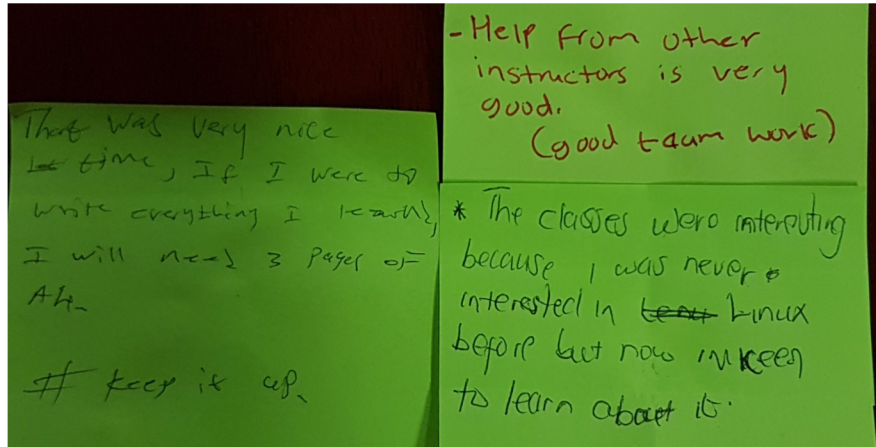 That was very nice
time, If I were to
write everything I learnt,
I will need 3 pages of
A4.
# keep it up.
- Help from other
instructors is very
good.
(good taum work)
* The classes were interesting
because I was never
interested in Linux
before but now im keen
to learn about it.